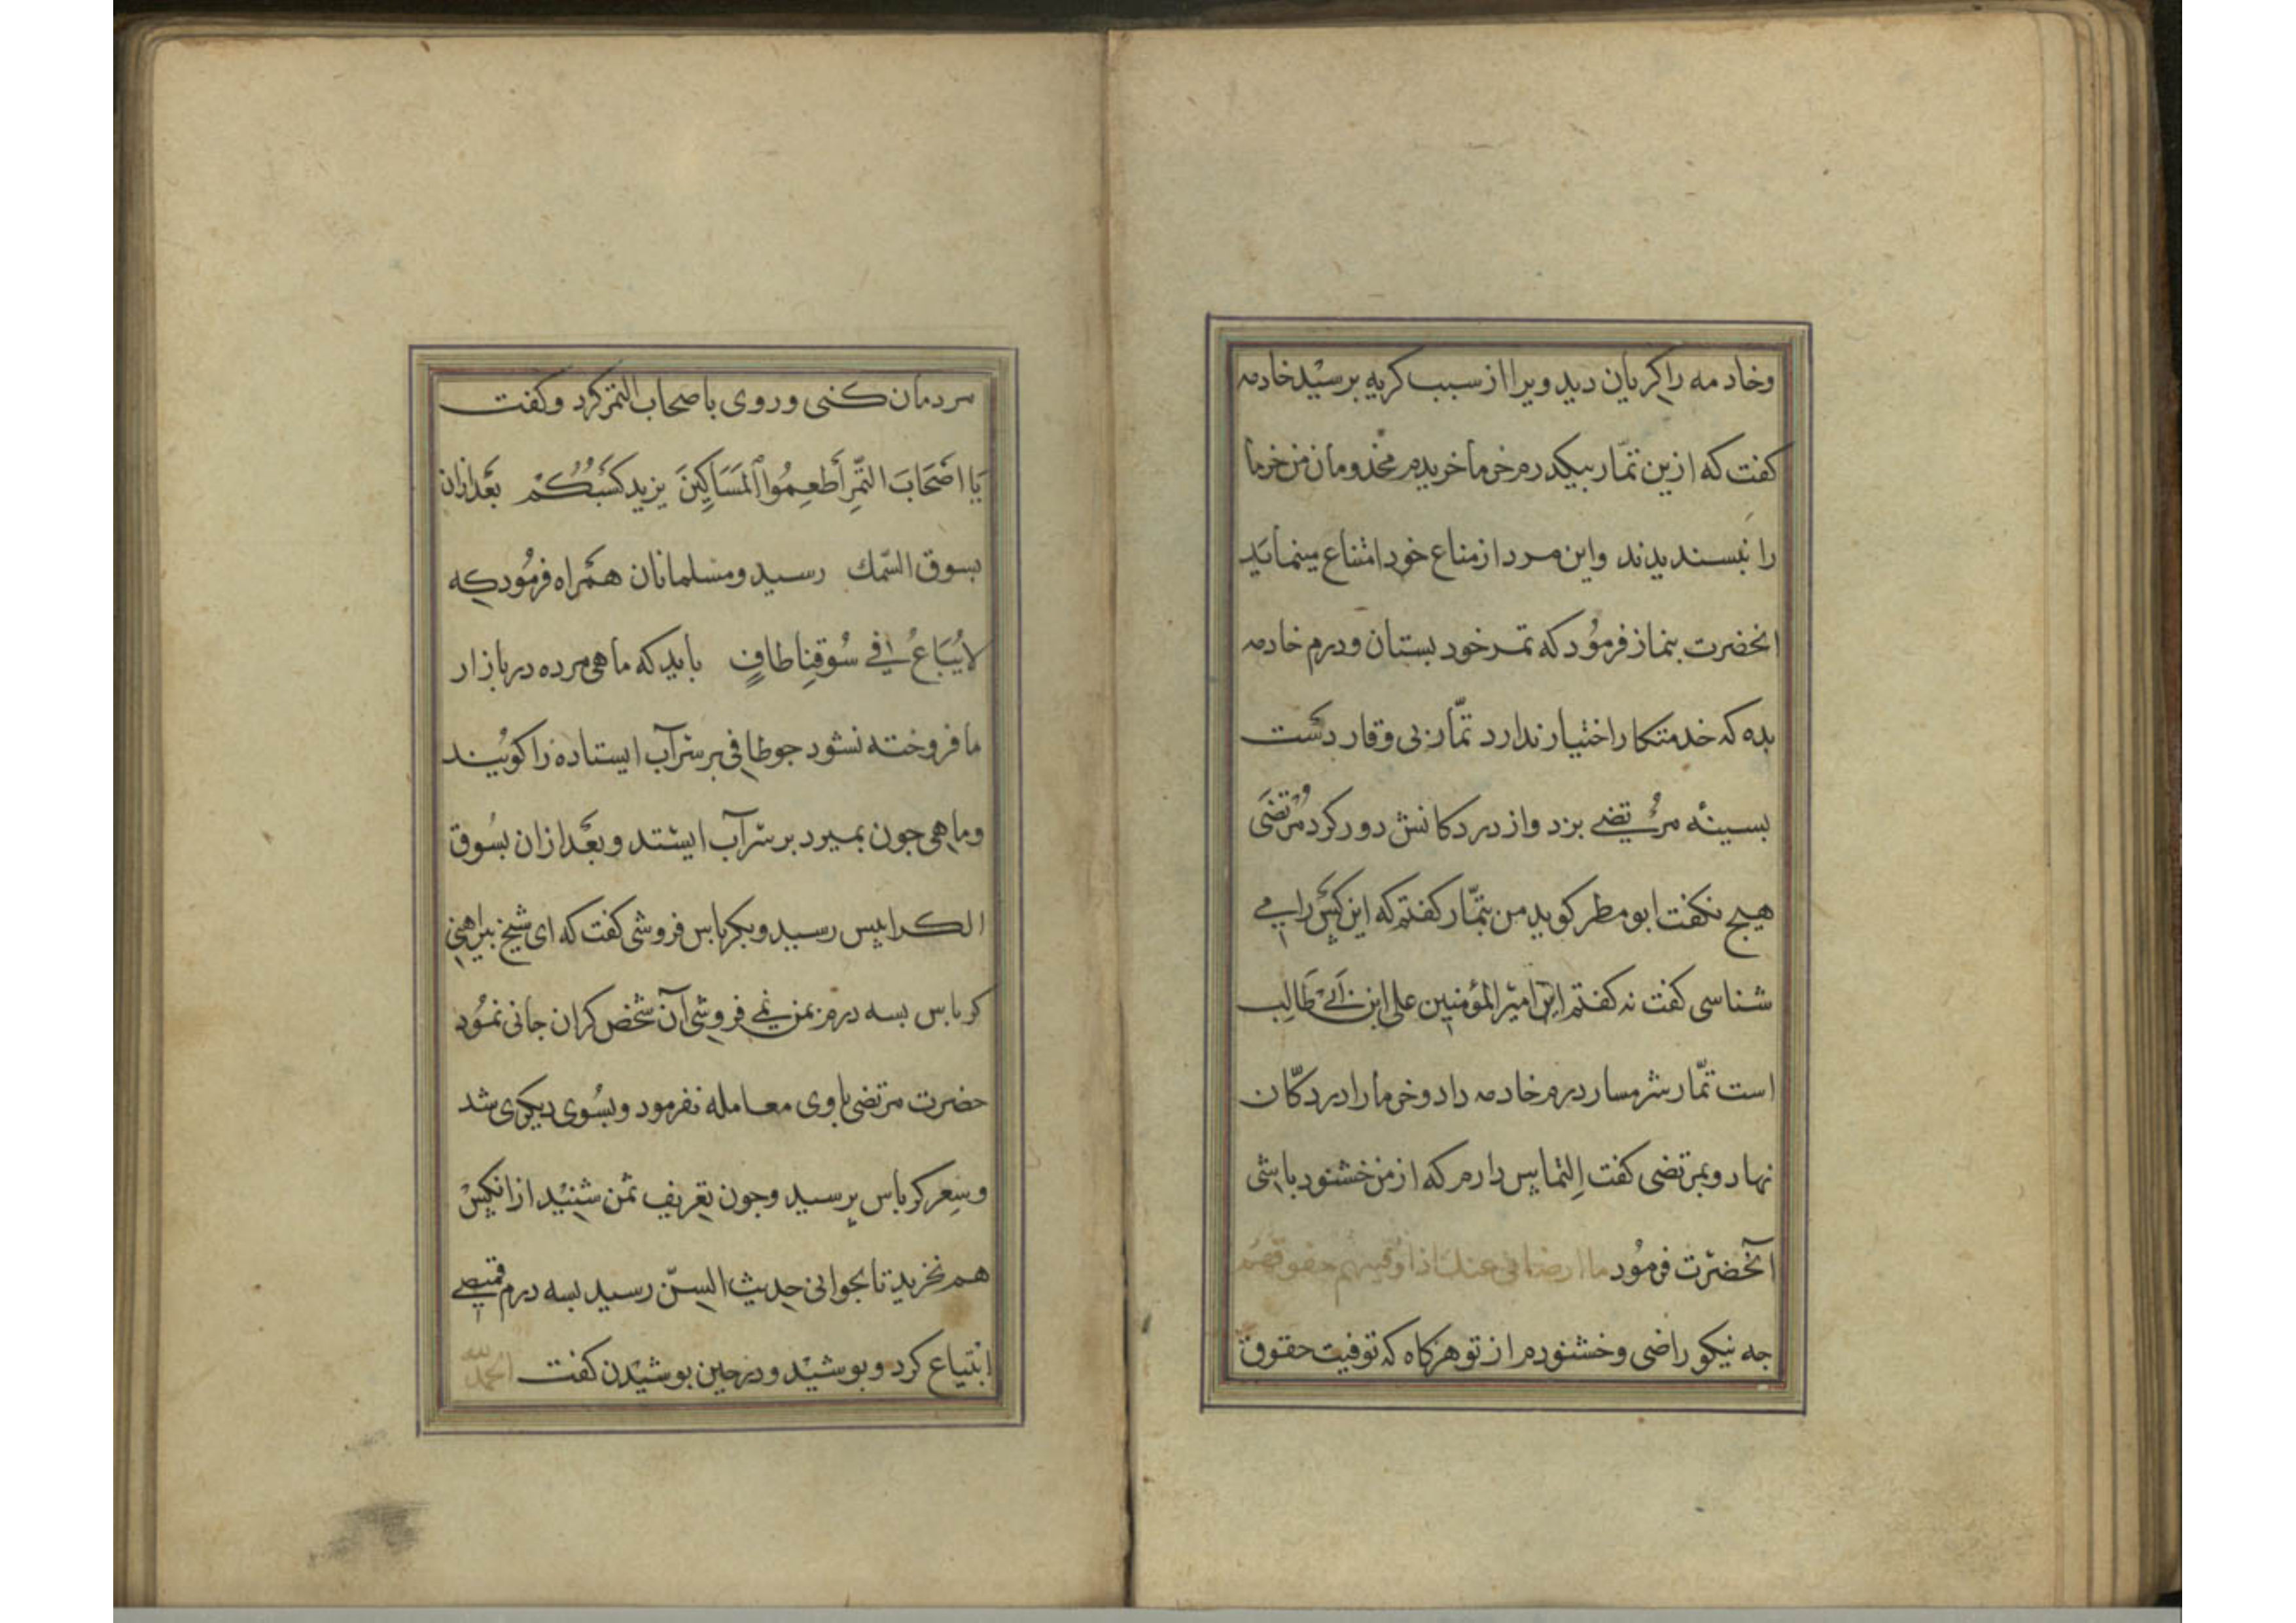 وخادمه را کریان دید ویرا از سبب کریه برسید خادمه
کفت که ازین تمّار بیکدرم خرما خریدم مخدومان من خرما
را نبسندیدند واین مرد از متاع خود امتناع مینماید
انحضرت بتماز فرمود که تمر خود بستان ودرم خادمه
بده که خدمتکار اختیار ندارد تمّار بی وقار دست
بسینه مرتضی بزد واز در دکانش دور کرد مرتضی
هیچ نکفت ابو مطر کوید من بتمّار کفتم که این کس را می
شناسی کفت نه کفتم این امیر المؤمنین علی ابن ابی طالب
است تمّار شرمسار درم خادمه داد وخرما را در دکّان
نهاد وبمرتضی کفت التماس دارم که از من خشنود باشی
آنحضرت فرمود ما ارضانی عنک اذا اوفیتهم حقوقهم
جه نیکو راضی وخشنودم از تو هرکاه که توفیت حقوق
مردمان کنی وروی باصحاب التمر کرد وکفت
یا اصحاب التّمر أطعموا المساکین یزید کسبکم بعد ازان
بسوق السّمک رسید ومسلمانان همراه فرمود که
لا یباع فی سوقنا طافٍ باید که ماهی مرده در بازار
ما فروخته نشود جو طافی بر سر آب ایستاده را کویند
وماهی جون بمیرد بر سر آب ایستد وبعد ازان بسوق
الکرابیس رسید وبکرباس فروشی کفت که ای شیخ بیراهنی
کرباس بسه درم بمن نمی فروشی آن شخص کران جانی نمود
حضرت مرتضی باوی معامله نفرمود وبسوی دیکری شد
وسعر کرباس برسید وجون تعریف ثمن شنید از انکس
هم نخرید تا بجوانی حدیث السّن رسید بسه درم قمیصی
ابتیاع کرد وبوشید ودر حین بوشیدن کفت الحمد لله